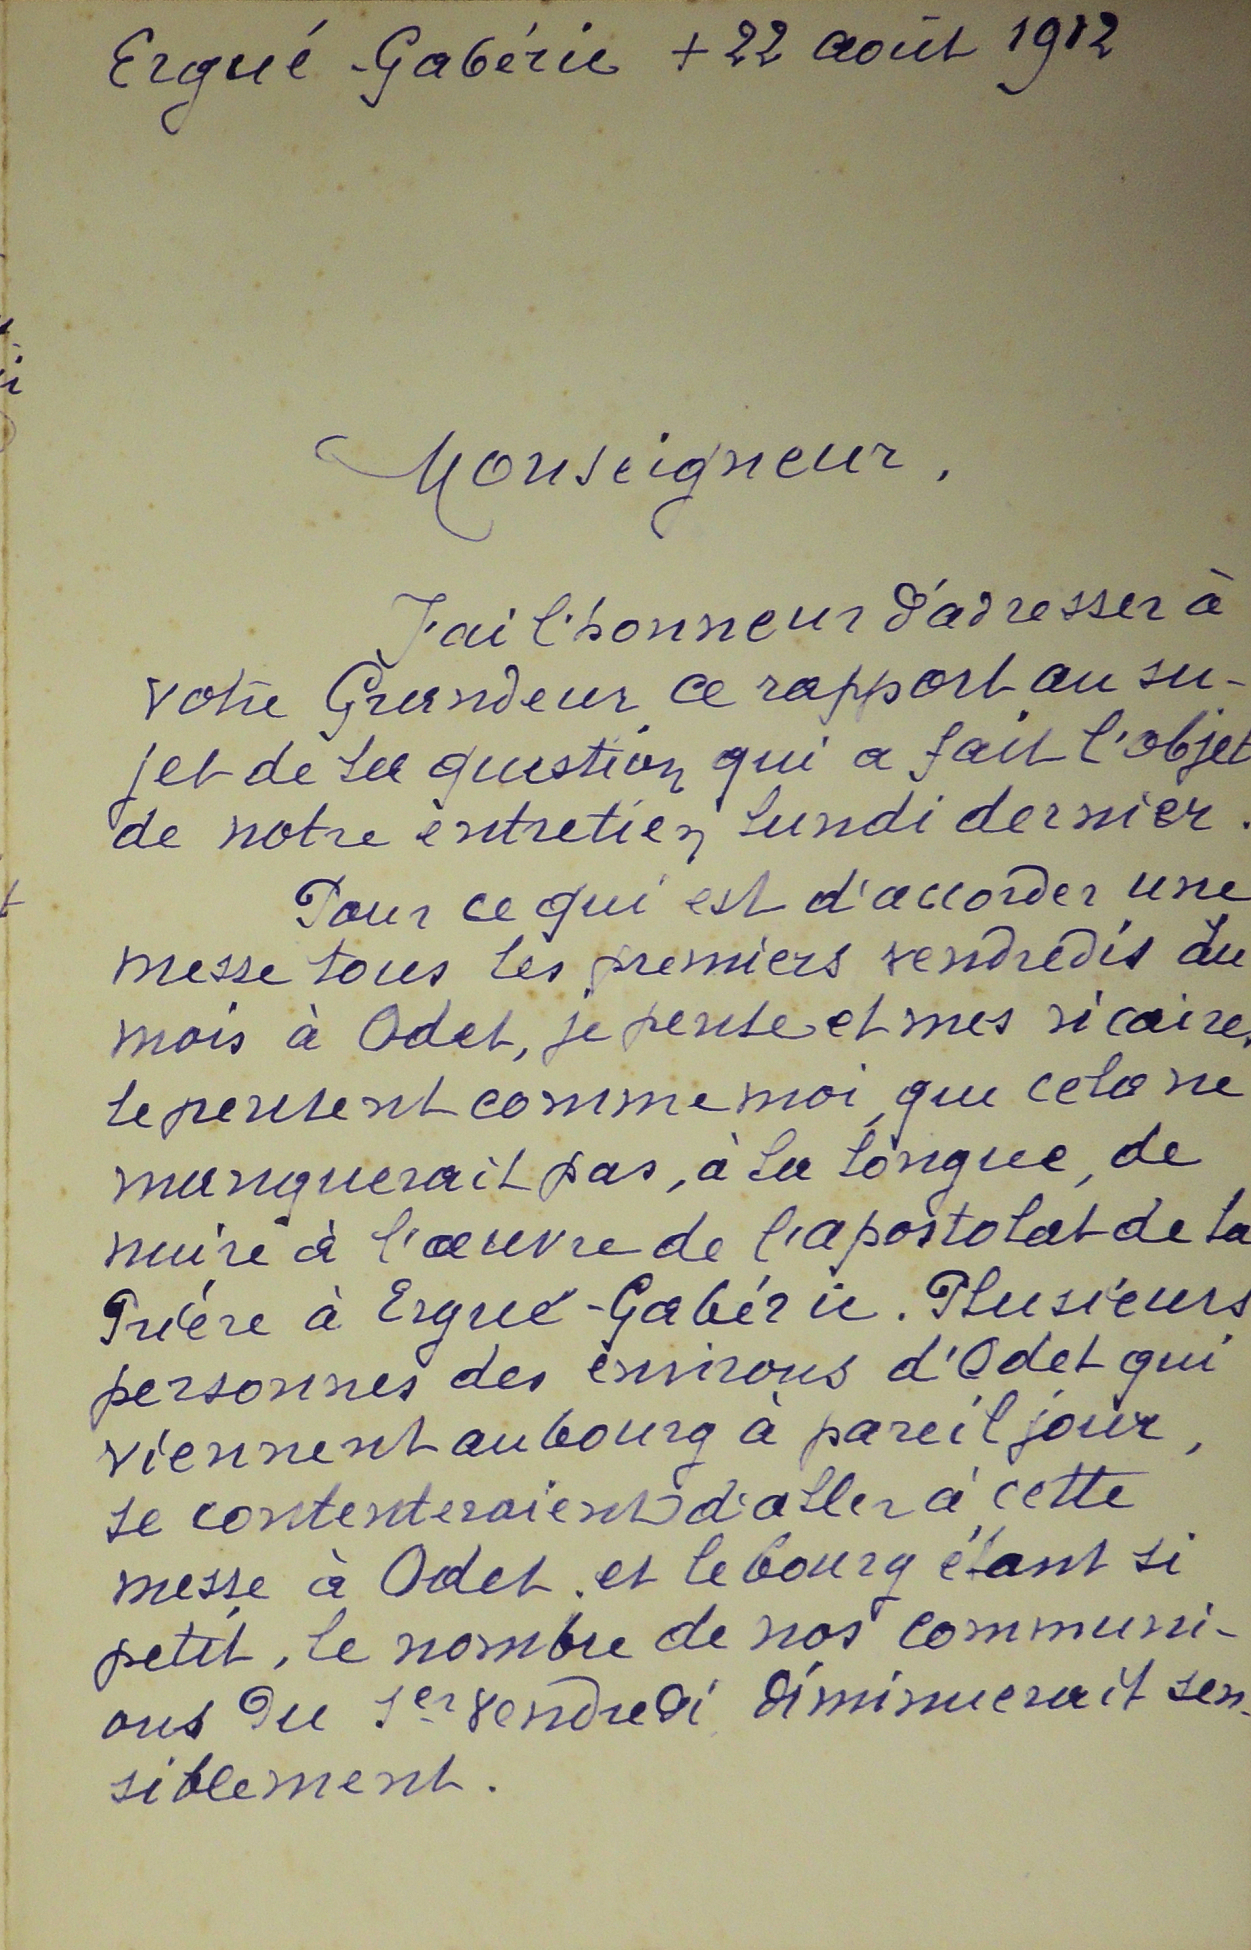 Ergué-Gabéric + 22 août 1912
Monseigneur,
J'ai l'honneur d'adresser à
votre Grandeur ce rapport au su-
jet de la question qui a fait l'objet
de notre entretien lundi dernier.
Pour ce qui est d'accorder une
messe tous les premiers vendredis du
mois à Odet, je pense et mes vicaires
le pensent comme moi, que cela ne
manquerait pas, à la longue, de
nuire à l'œuvre de l'apostolat de la
Prière à Ergué-Gabéric. Plusieurs
personnes des environs d'Odet qui
viennent au bourg à pareil jour,
se contenteraient d'aller à cette
messe à Odet, et le bourg étant si
petit, le nombre de nos communi-
ons du 1er vendredi diminuerait sen-
siblement.